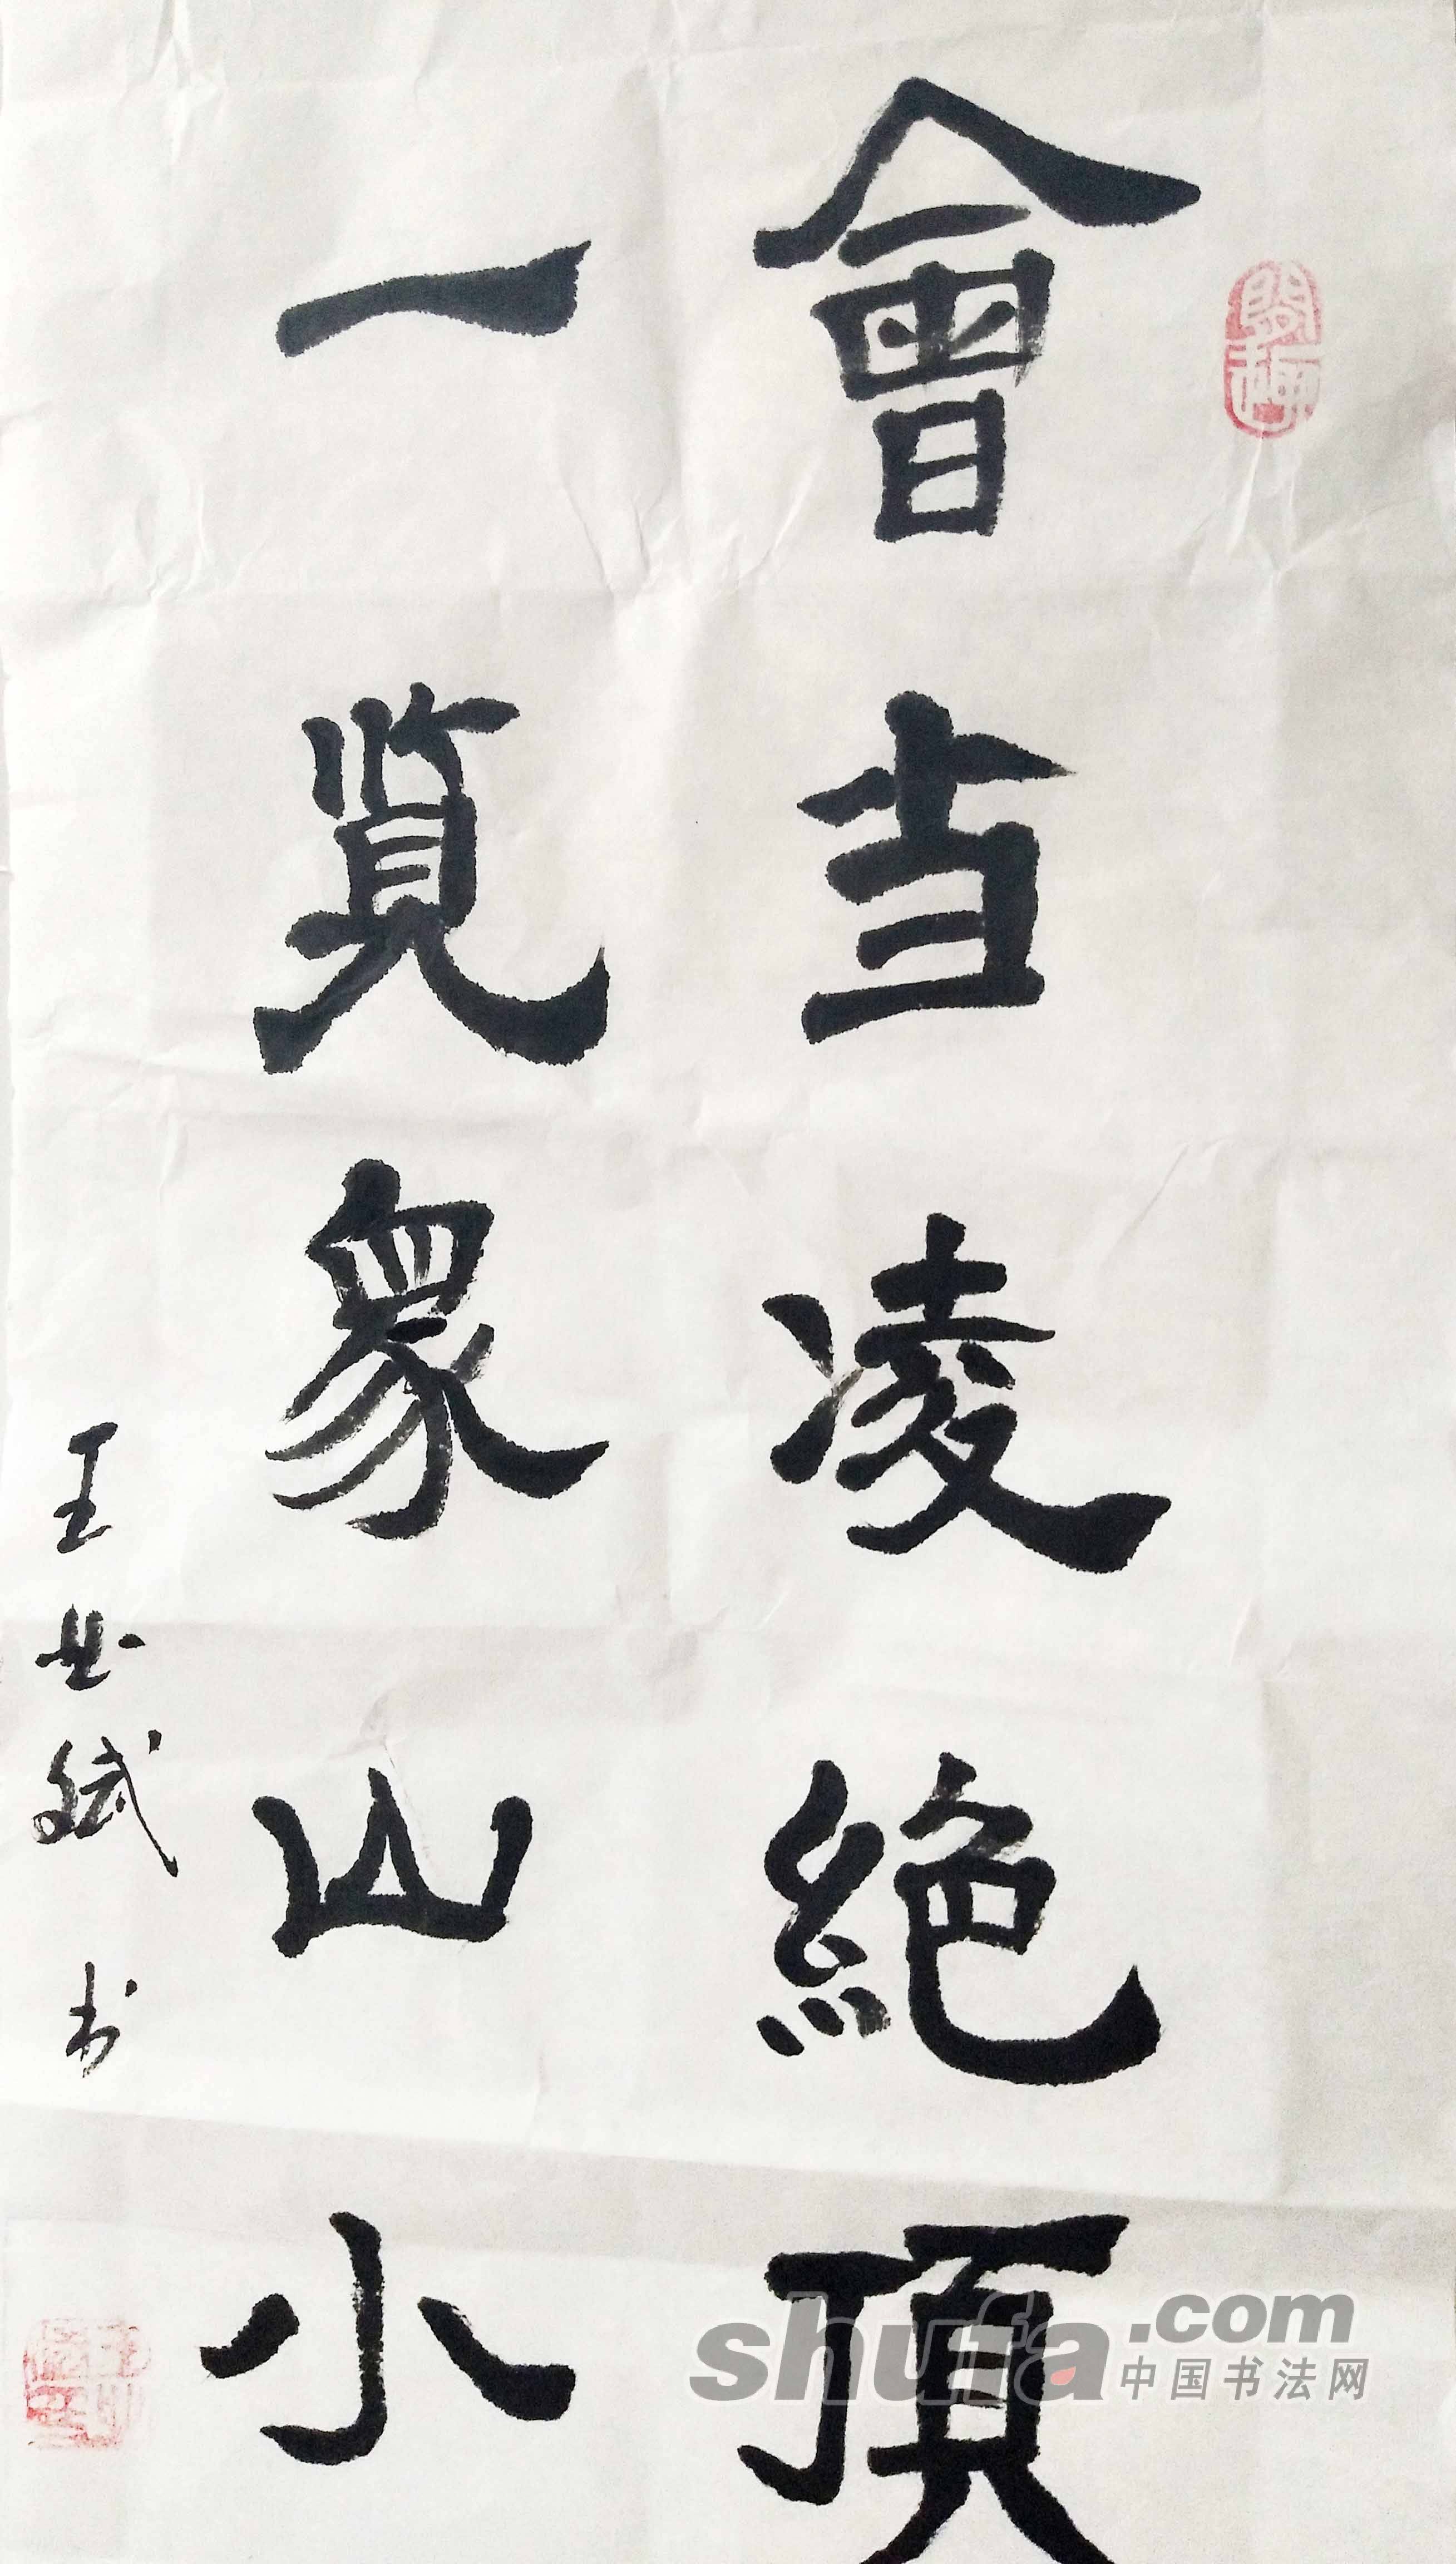 會当凌絶頂
一览衆山小
王业斌书
shufa.com
中国书法网